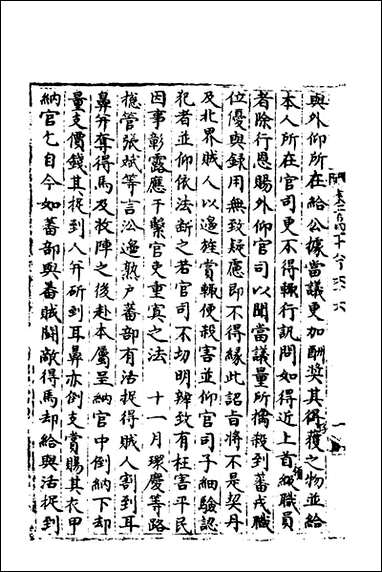 與外仰所在給公據當議更加酬奬其得獲之物並給
本人所在官司更不得輙行訊問如得近上首領職員
者除行恩賜外仰官司以聞當議量所擒殺到蕃戎職
位優與録用無致疑慮即不得緣此詔旨將不是契丹
及北界賊人以邀旌賞輙便殺害並仰官司子細驗認
犯者並仰依法斷之若官司不切明辨致有枉害平民
因事彰露應干繫官吏重寘之法　十一月環慶等路
摠管張斌等言沿邊熟户蕃部有活捉得賊人割到耳
鼻并奪得馬及杴陣之後赴本屬呈納官中倒納下却
量支價錢其捉到人并斫到耳鼻亦倒支賞賜其衣甲
納官乞自今如蕃部與蕃賊鬭敵得馬却給與活捉到